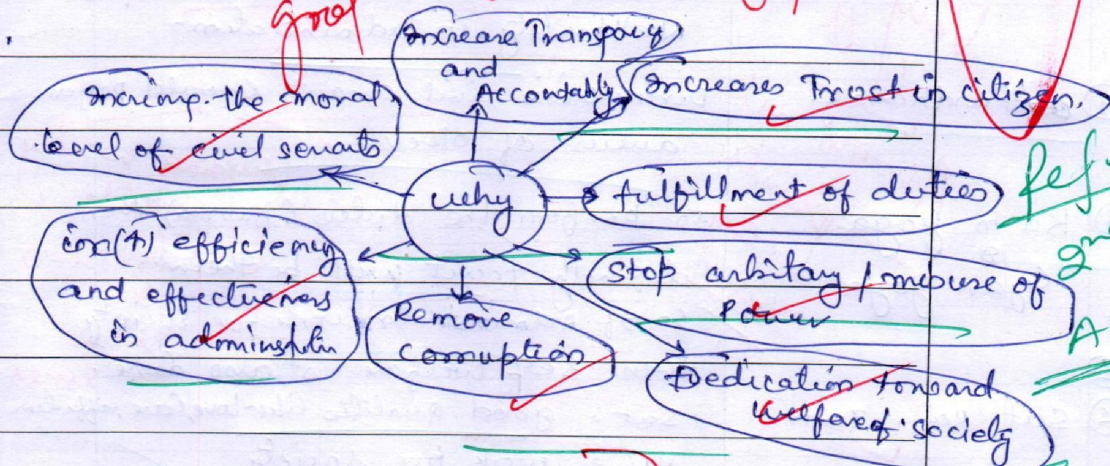 good
Increase Transpary
and
Accontably
Increases Trust in citizen.
Increing. the moral
level of civil servats
why
fulfillment of duties
in(↑) efficieny
and effectiveness
in adminstratin
Stop arbitary / misuse of
Power
Remove
corruption
Dedication toward
welfare of society